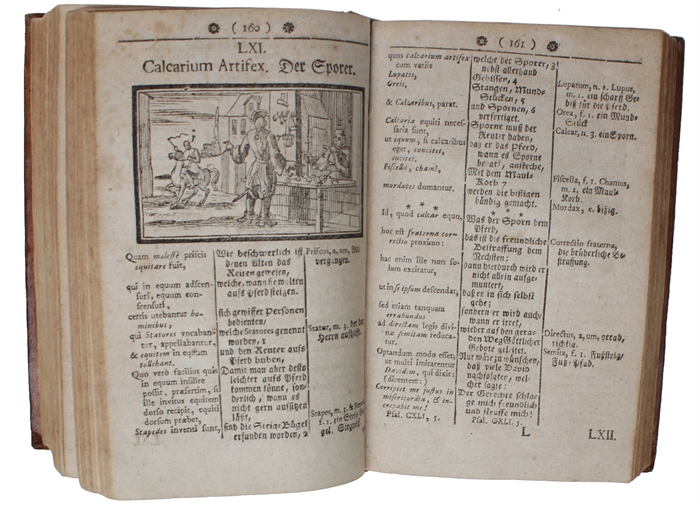 ( 160 )
LXI.
Calcarium Artifex. Der Sporer.
Quam molestè priscis
equitare fuit,
qui in equum adscen-
suri, equum con-
scensuri,
certis utebantur ho-
minibus;
qui Statores vocaban-
tur, appellabantur,
& equitem in equum
tollebant.
Quo verò facilius quis
in equum insilire
possit, præsertim, si
ille invitus equitem
dorso recipit, equiti
dorsum præbet,
Stapedes inventi sunt,
Wie beschwerlich ist
denen Alten das
Reuten gewesen,
welche, wann sie wolten
aufs Pferd steigen.
sich gewisser Personen
bedienten,
welche Statores genennt
wurden, 1
und den Reuter aufs
Pferd huben.
Damit man aber desto
leichter aufs Pferd
kommen könne, son-
derlich, wann es
nicht gern aufsitzen
läst,
sind die Steig-Bügel
erfunden worden, 2
Priscus, a, um,
vergangen.
Stator, m. 3. der
Herrn
Stapes, m. 3. &
f. 1. ein Steig
( 161 )
quos calcarium artifex
cum variis
Lupatis,
Oreis,
& Calcaribus, parat.
Calcaria equiti neces-
saria sunt,
ut equum, si calcaribus
eget, concitet,
incitet.
Fiscellâ, chamô,
mordaces domantur.
* * *
Id, quod calcar equo,
hoc est fraterna cor-
rectio proximo:
hac enim ille non so-
lum excitatur,
ut in se ipsum descendat,
sed etiam tanquam
errabundus
ad directam legis divi-
næ semitam reduca-
tur.
Optandum modo esset,
ut multi imitarentur
Davidem, qui dixit:
(dicentem:)
Corripiet me justus in
misericordia, & in-
crepabit me!
Psal. CXLI, 5.
welche der Sporer, 3
nebst allerhand
Gebissen, 4
Stangen, Mund-
Stücken, 5
und Spornen, 6
verfertiget.
Sporne muß der
Reuter haben,
daß er das Pferd,
wann es Sporne
bedarf, anstreche,
Mit dem Maul-
Korb 7
werden die bissigen
bändig gemacht.
Was der Sporn dem
Pferd,
das ist die freundliche
Bestraffung dem
Nechsten:
dann hierdurch wird er
nicht allein aufge-
muntert,
daß er in sich selbst
gehe;
sondern er wird auch,
wann er irret,
wieder auf den gera-
den Weg Göttlicher
Gebote geleitet.
Nur wäre zu wünschen,
daß viele David
nachfolgten, wel-
cher sagte:
Der Gerechte schla-
ge mich freundlich
und straffe mich!
Psal. CXLI. 5.
Lupatum, n. 2. Lupus,
m. 2. ein scharff Ge-
biß für die Pferd.
Orea, f. 1. ein Mund-
Stück
Calcar, n. 3. ein Sporn.
Fiscella, f. 1. Chamus,
m. 2. ein Maul-
Korb.
Mordax, c. bißig.
Correctio fraterna,
die brüderliche Be-
straffung.
Directus, a, um, gerad,
richtig.
Semita, f. 1. Fußsteig,
Fuß-Pfad.
L
LXII.